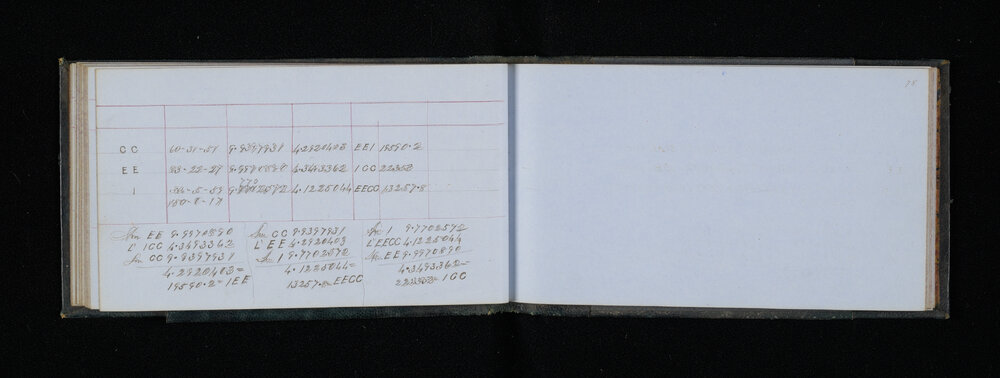 CC 60-31-51 9.9397931 4.2920403 EEI 19590.2
EE 83-22-27 9.9970890 4.3493362 ICC 22353
I 9.7702572 4.1225044 EECC 13257.8
180-0-17
Sin EE 9.9970890
L' ICC 4.3493362
Sin CC 9.9397931
4.2920403=
19590.2=IEE
Sin CC 9.9397931
L' EE 4.2920403
Sin I 9.7702572
4.1225044=
13257.8=EECC
Sin I 9.7702572
L' EECC 4.1225044
Sin EE 9.9970890
4.3493362=
22353=ICC
78